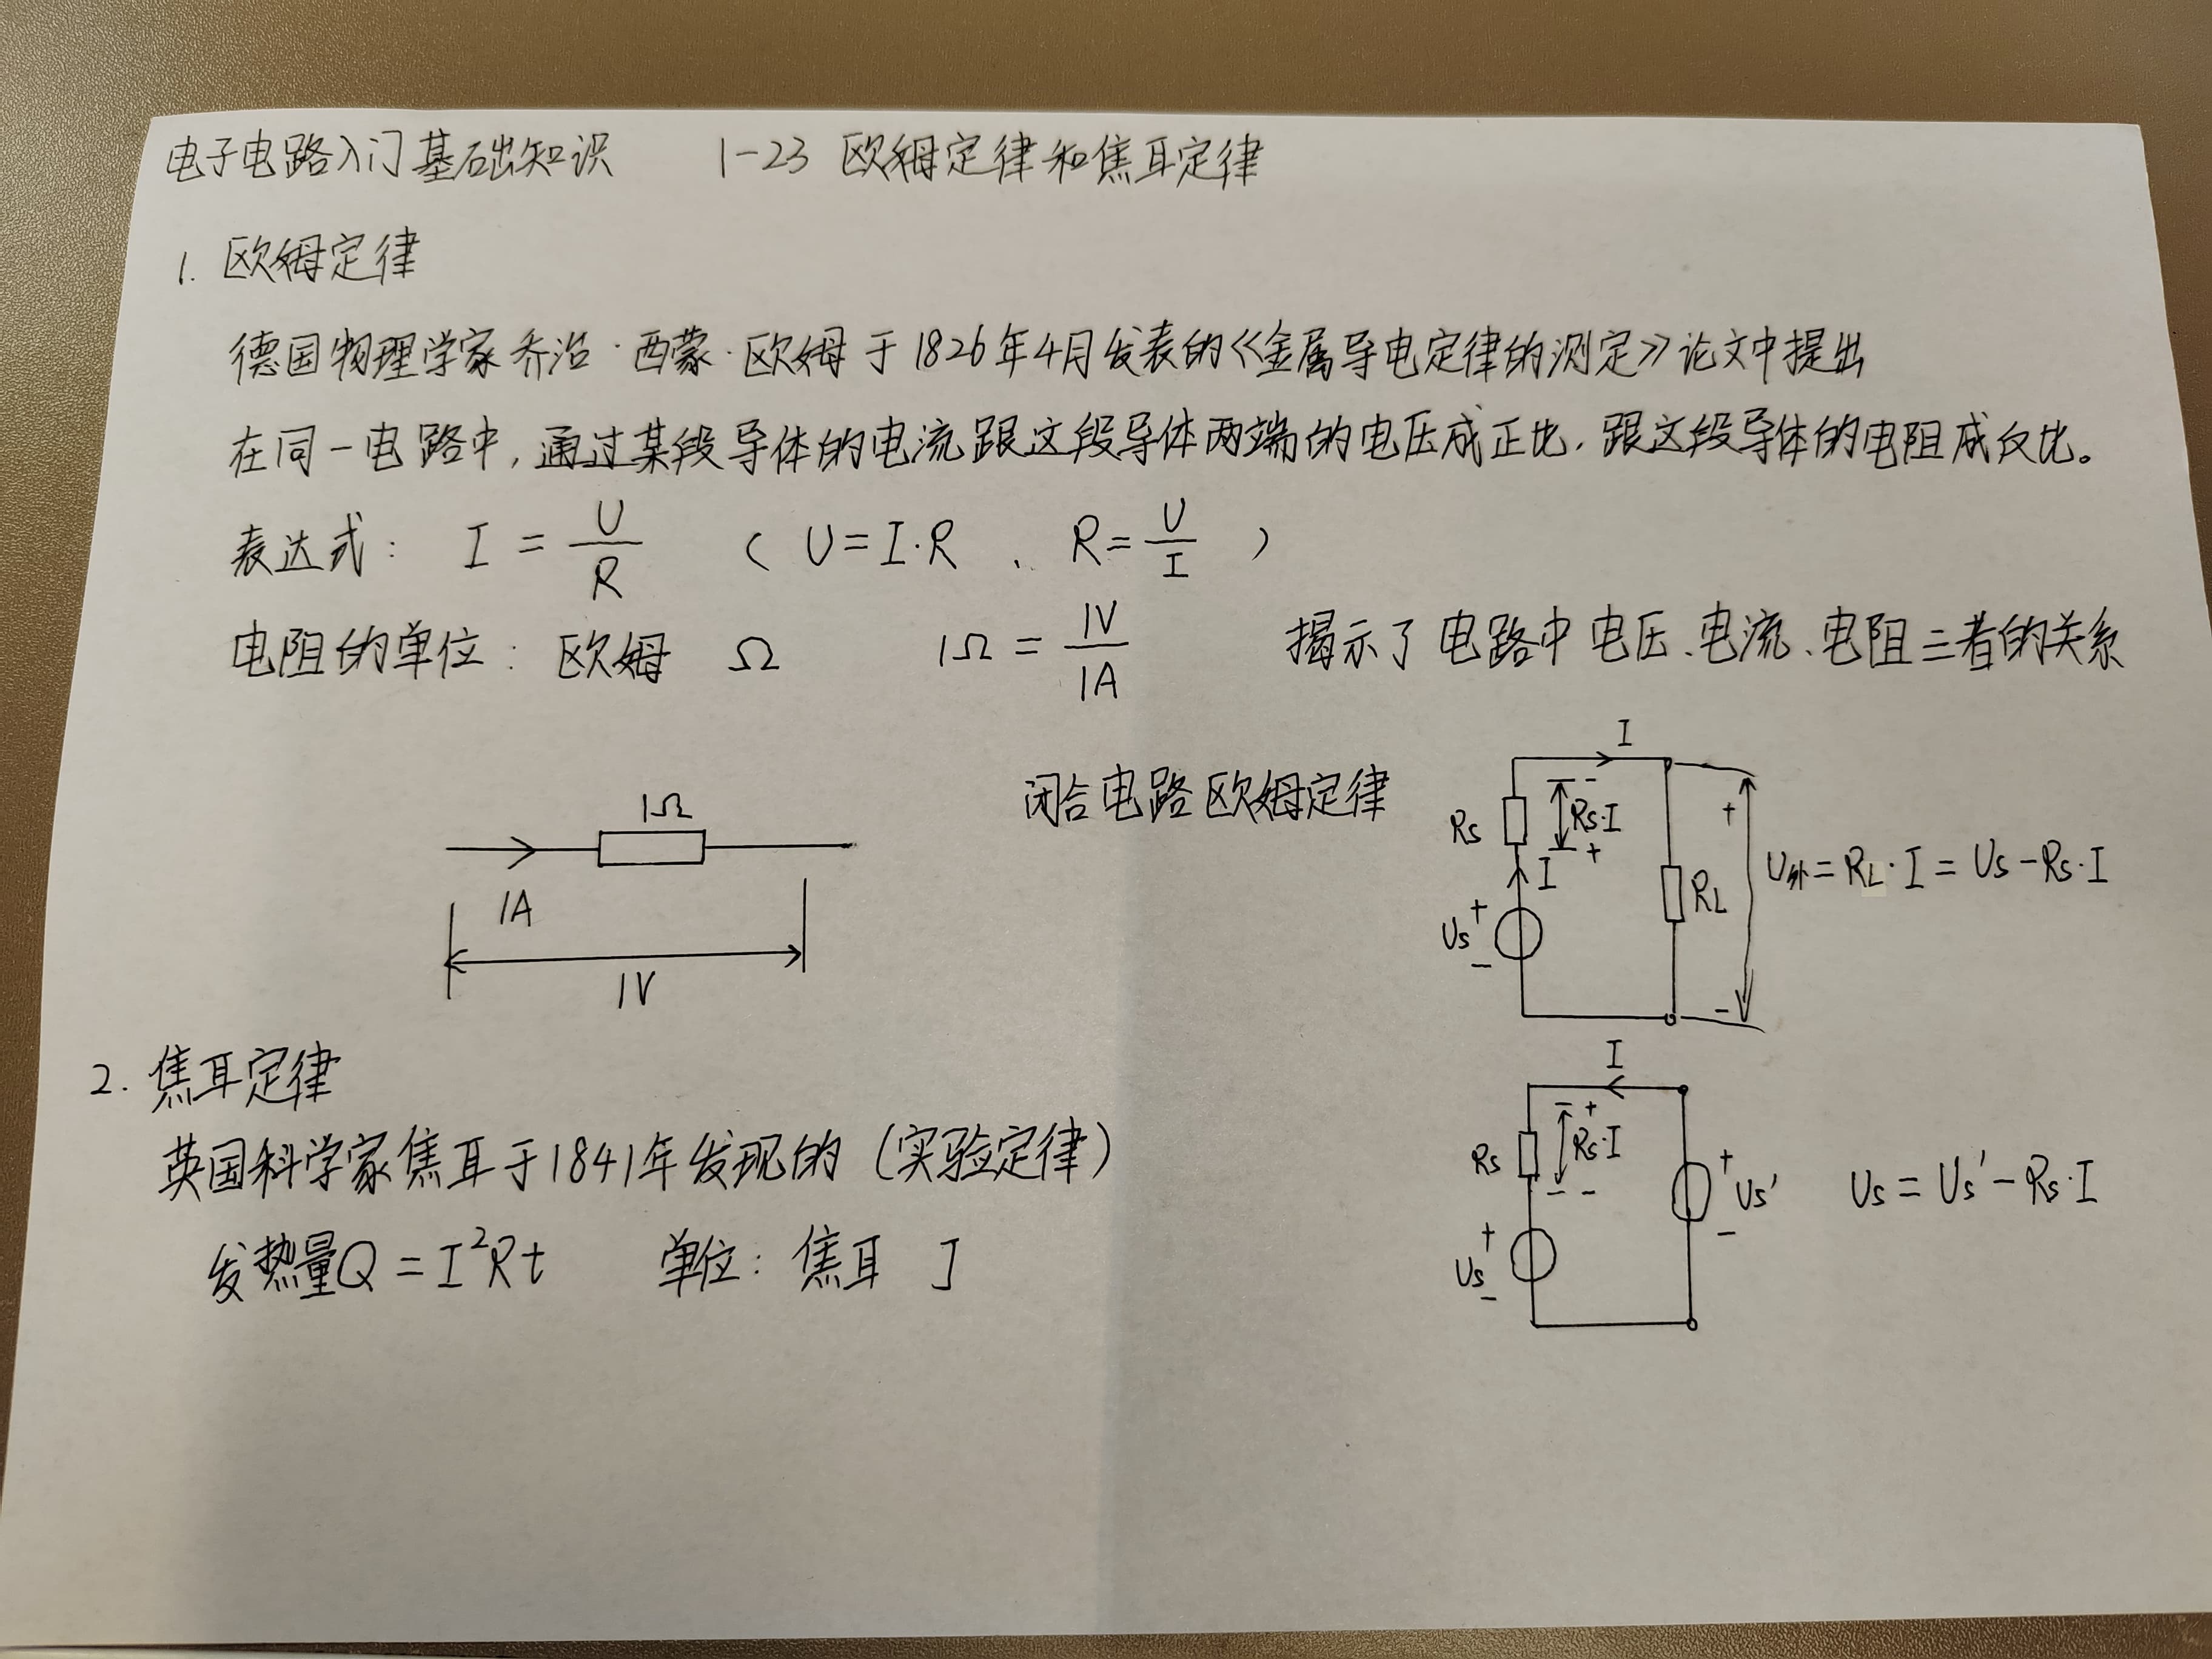 电子电路入门基础知识 1-23 欧姆定律和焦耳定律
1. 欧姆定律
德国物理学家乔治·西蒙·欧姆于1826年4月发表的《金属导电定律的测定》论文中提出
在同一电路中,通过某段导体的电流跟这段导体两端的电压成正比,跟这段导体的电阻成反比。
表达式: I = U/R ( U=I·R 、 R=U/I )
电阻的单位: 欧姆 Ω 1Ω = 1V/1A 揭示了电路中电压、电流、电阻三者的关系
1Ω
1A
1V
闭合电路欧姆定律
I
Rs
- Rs·I +
I
+ Us -
RL
+ -
U外=RL·I=Us-Rs·I
2. 焦耳定律
英国科学家焦耳于1841年发现的(实验定律)
发热量Q=I²Rt 单位: 焦耳 J
I
Rs
+ Rs·I -
+ Us -
+ Us' -
Us=Us'-Rs·I